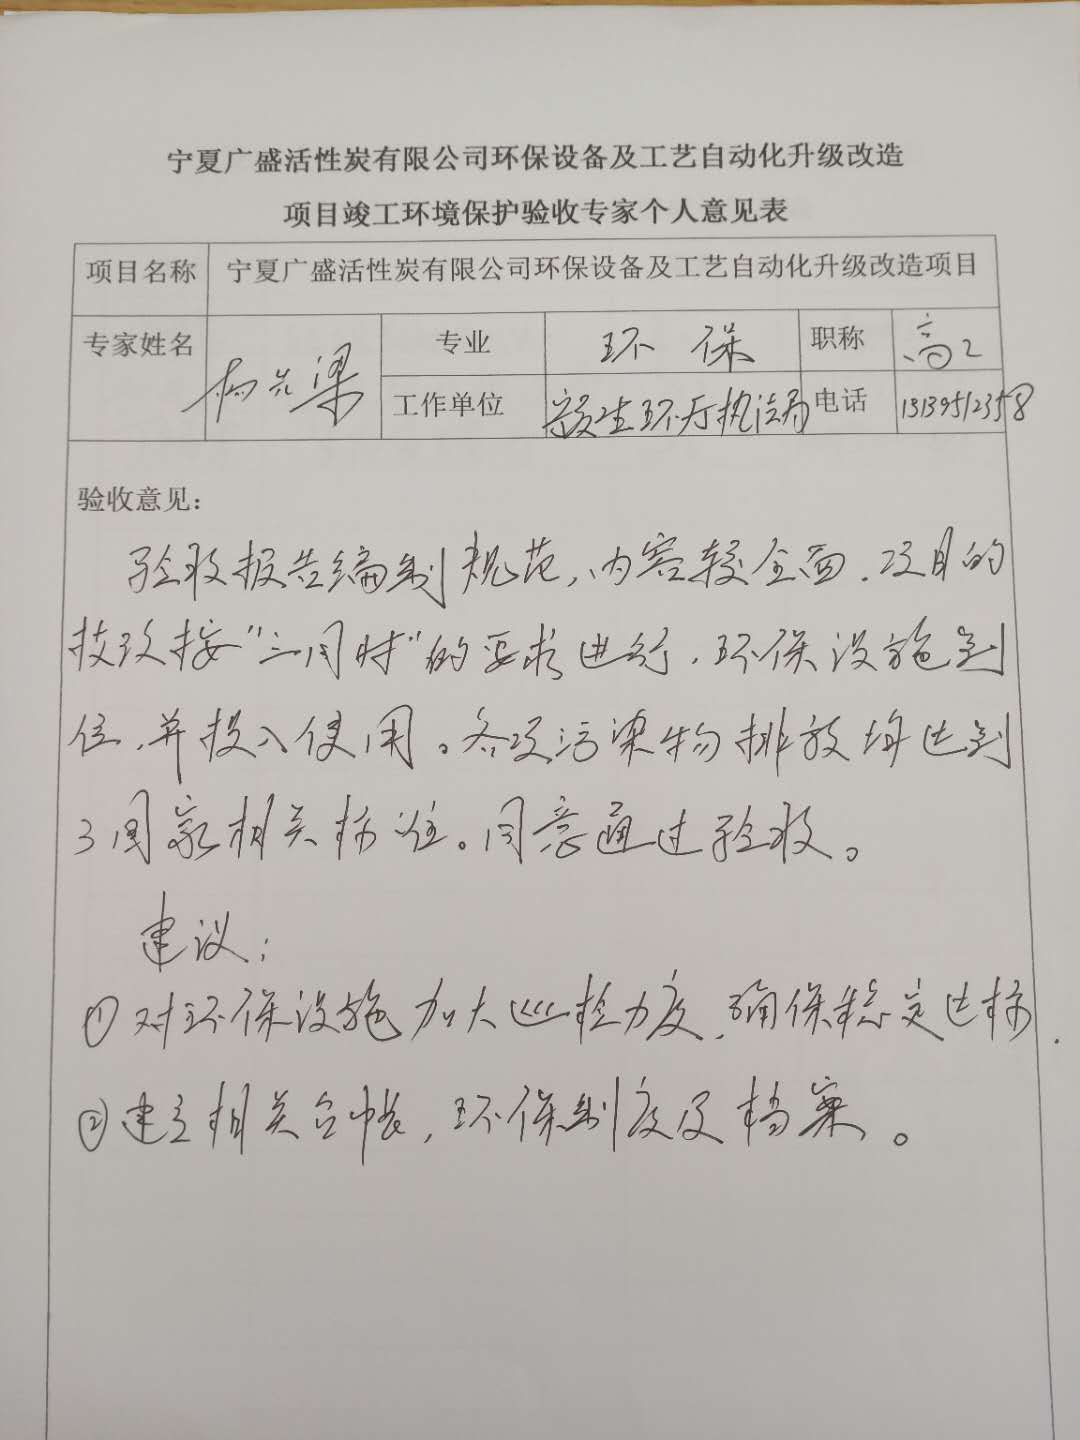 宁夏广盛活性炭有限公司环保设备及工艺自动化升级改造
项目竣工环境保护验收专家个人意见表
项目名称 宁夏广盛活性炭有限公司环保设备及工艺自动化升级改造项目
专家姓名 专业 环保 职称 高工
工作单位 生环厅执法局 电话 13139512358
验收意见：
验收报告编制规范,内容较全面.项目的
技改按"三同时"的要求进行,环保设施到
位,并投入使用。各项污染物排放均达到
了国家相关标准。同意通过验收。
建议:
①对环保设施加大巡检力度,确保稳定达标.
②建立相关台帐,环保制度及档案。